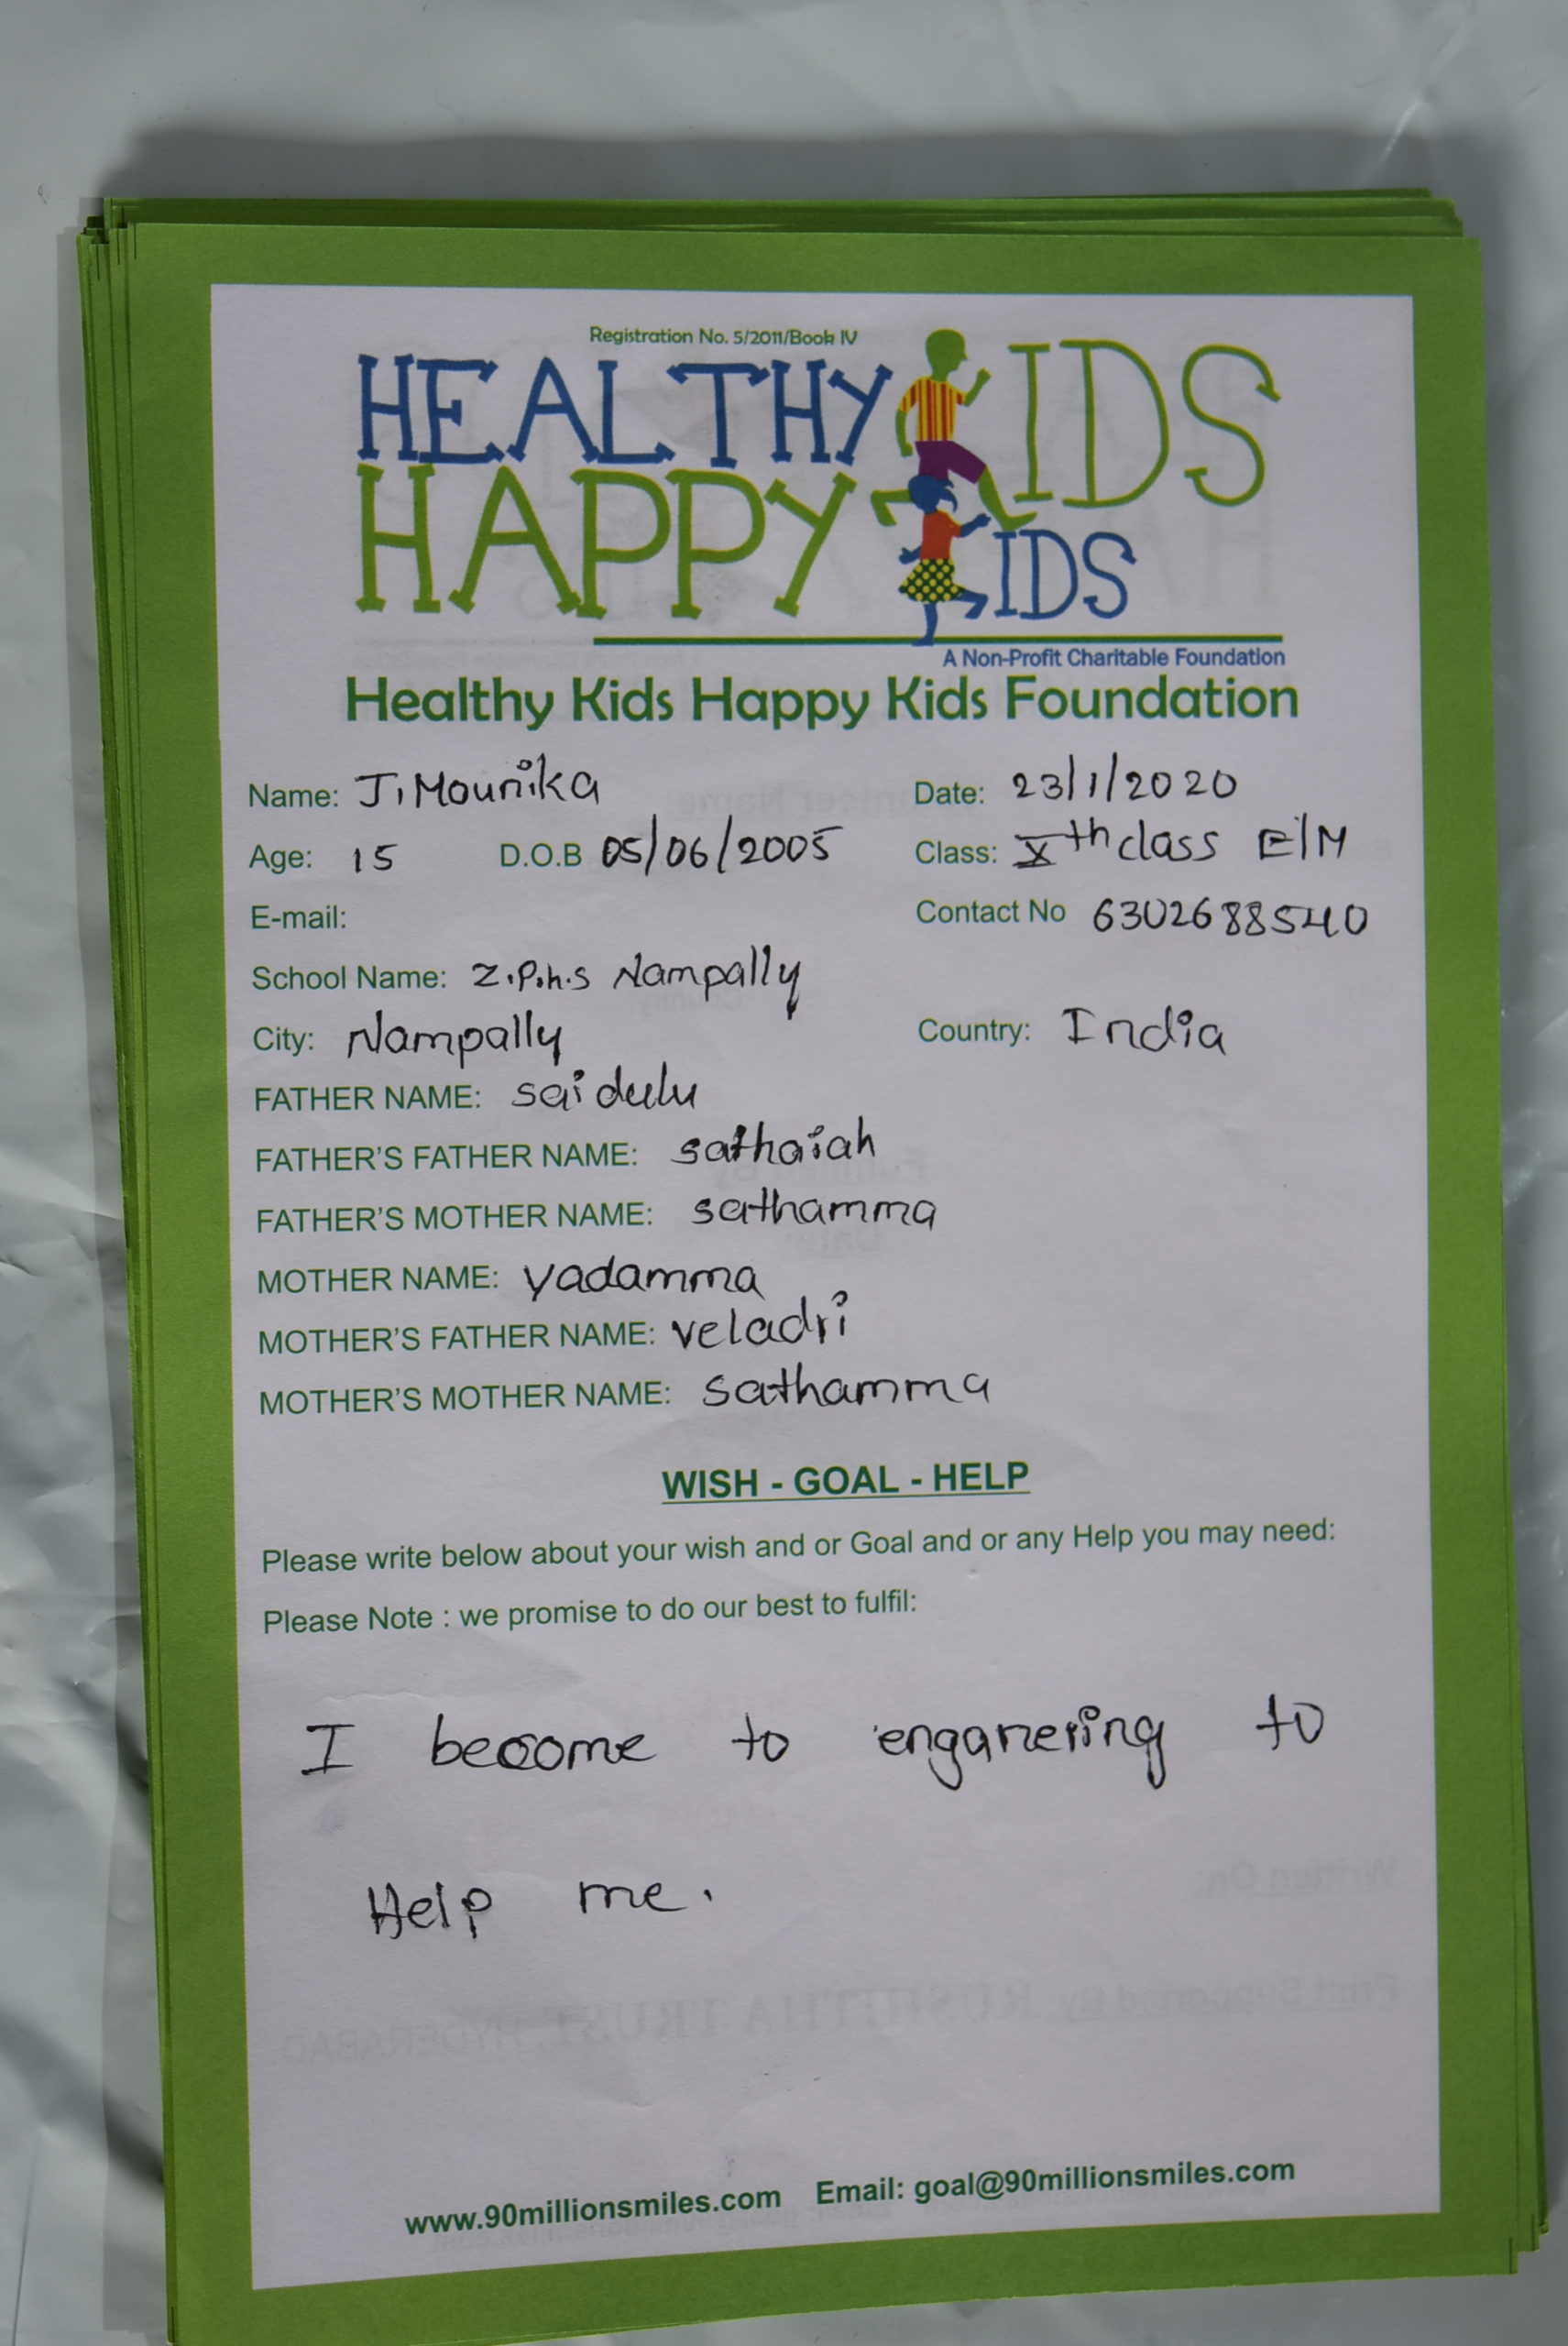 Registration No. 5/2011/Book IV
HEALTHY KIDS
HAPPY KIDS
A Non-Profit Charitable Foundation
Healthy Kids Happy Kids Foundation
Name: J. Mounika Date: 23/1/2020
Age: 15 D.O.B 05/06/2005 Class: Xth class E/M
E-mail: Contact No 6302688540
School Name: Z.P.h.s Nampally
City: Nampally Country: India
FATHER NAME: saidulu
FATHER'S FATHER NAME: sathaiah
FATHER'S MOTHER NAME: sathamma
MOTHER NAME: yadamma
MOTHER'S FATHER NAME: veladri
MOTHER'S MOTHER NAME: sathamma
WISH - GOAL - HELP
Please write below about your wish and or Goal and or any Help you may need:
Please Note : we promise to do our best to fulfil:
I become to enganering to
Help me.
www.90millionsmiles.com Email: goal@90millionsmiles.com